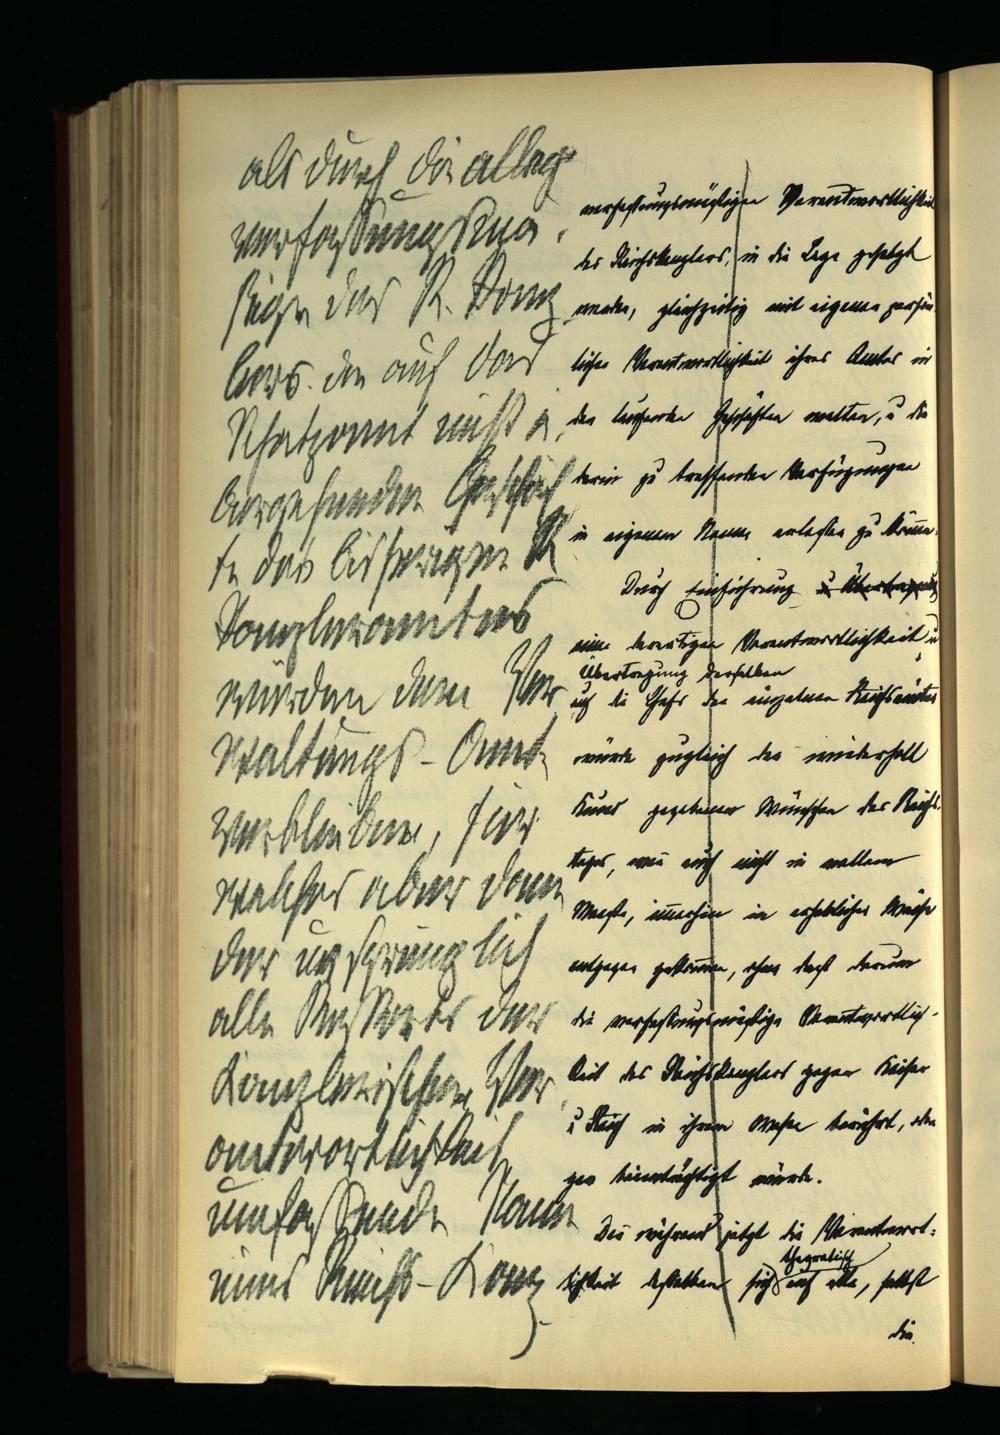 als durch die allen
verfassungsmä
ßige des R. Kanz
lers. Die auf das
Schatzamt nicht ü
bergehenden Geschäf
te des bisherigen R
Kanzleramtes
würden dem Ver
waltungs-Amt
verbleiben, für
welches aber dann
der ursprünglich
alle Ressorts der
Kanzlerischen Ver
antwortlichkeit
umfassende Name
eines Reichs-Kanz
verfassungsmäßigen Verantwortlichkeit
des Reichskanzlers, in die Lage gesetzt
werden, gleichzeitig mit eigener persön
licher Verantwortlichkeit ihres Amtes in
den laufenden Geschäften walten, u die
darin zu treffenden Verfügungen
in eigenem Namen erlassen zu können.
Durch Einführung u Übertragung
einer derartigen Verantwortlichkeit u
Übertragung derselben
auf die Chefs der einzelnen Reichsämter
würde zugleich den wiederholt
kund gegebenen Wünschen des Reichs-
tages, wenn auch nicht in vollem
Maaße, immerhin in erheblicher Weise
entgegen gekommen, ohne daß darum
die verfassungsmäßige Verantwortlich-
keit des Reichskanzlers gegen Kaiser
u Reich in ihrem Wesen berührt, oder
gar beeinträchtigt würde.
Denn während jetzt die Verantwort-
theoretisch
lichkeit desselben sich auf alle, selbst
die